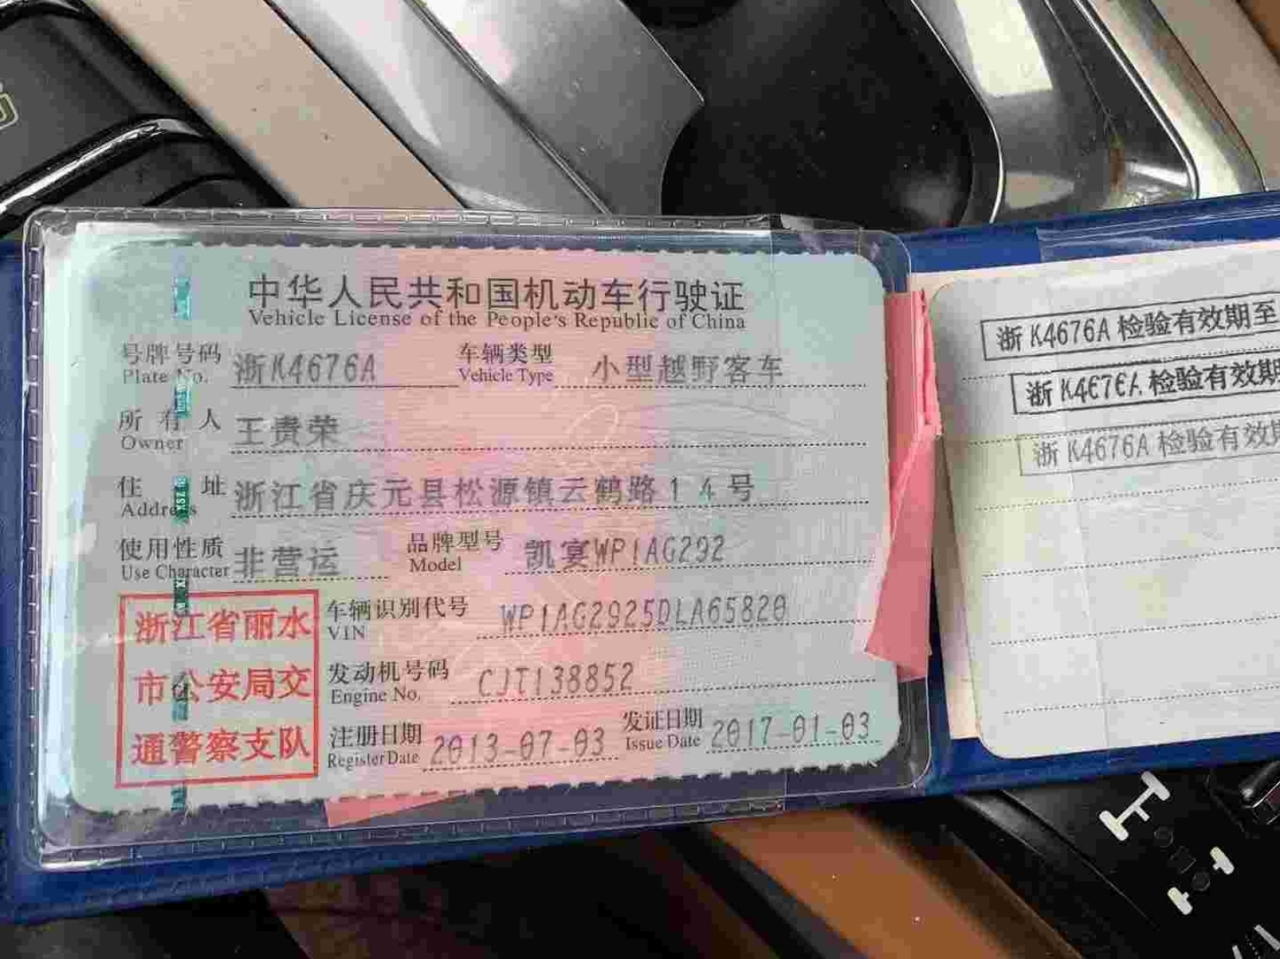 中华人民共和国机动车行驶证
Vehicle License of the People's Republic of China
号牌号码 浙K4676A 车辆类型 小型越野客车
Plate No. Vehicle Type
所有人 王贵荣
Owner
住址 浙江省庆元县松源镇云鹤路14号
Address
使用性质 非营运 品牌型号 凯宴WP1AG292
Use Character Model
浙江省丽水
市公安局交
通警察支队
车辆识别代号 WP1AG2925DLA65820
VIN
发动机号码 CJT138852
Engine No.
注册日期 2013-07-03 发证日期 2017-01-03
Register Date Issue Date
浙K4676A检验有效期至
浙K4676A检验有效期
浙K4676A检验有效期